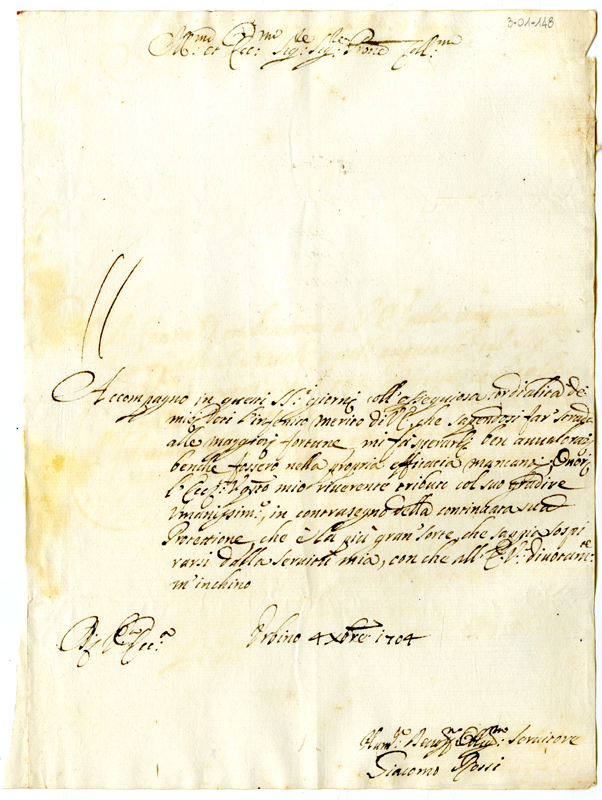 3-01-148
Ill.mo et Ecc.mo Sig.re Sig.re Pron.e Coll.mo
Accompagno in questi SS.i giorni coll'ossequiosa cordialità de
miei Voti l'infinito merito di VE, che sapendosi far strada
alle maggiori fortune mi fa sperarli ben avvalorati
benche fossero nella propria efficacia mancanti. Onori
l'Ecc.za V.ra questo mio riverente tributo col suo gradire
umanissimo, in contrasegno della continuata sua
Protezione, che è la più gran sorte, che sappia sospi
rarsi dalla servitù mia, con che all'E.V. divotam.te
m'inchino
Di V.ra Ecc.za
Urbino 4 Xbre 1704
Hum.o Devot.mo Obligat.mo Servitore
Giacomo Rossi